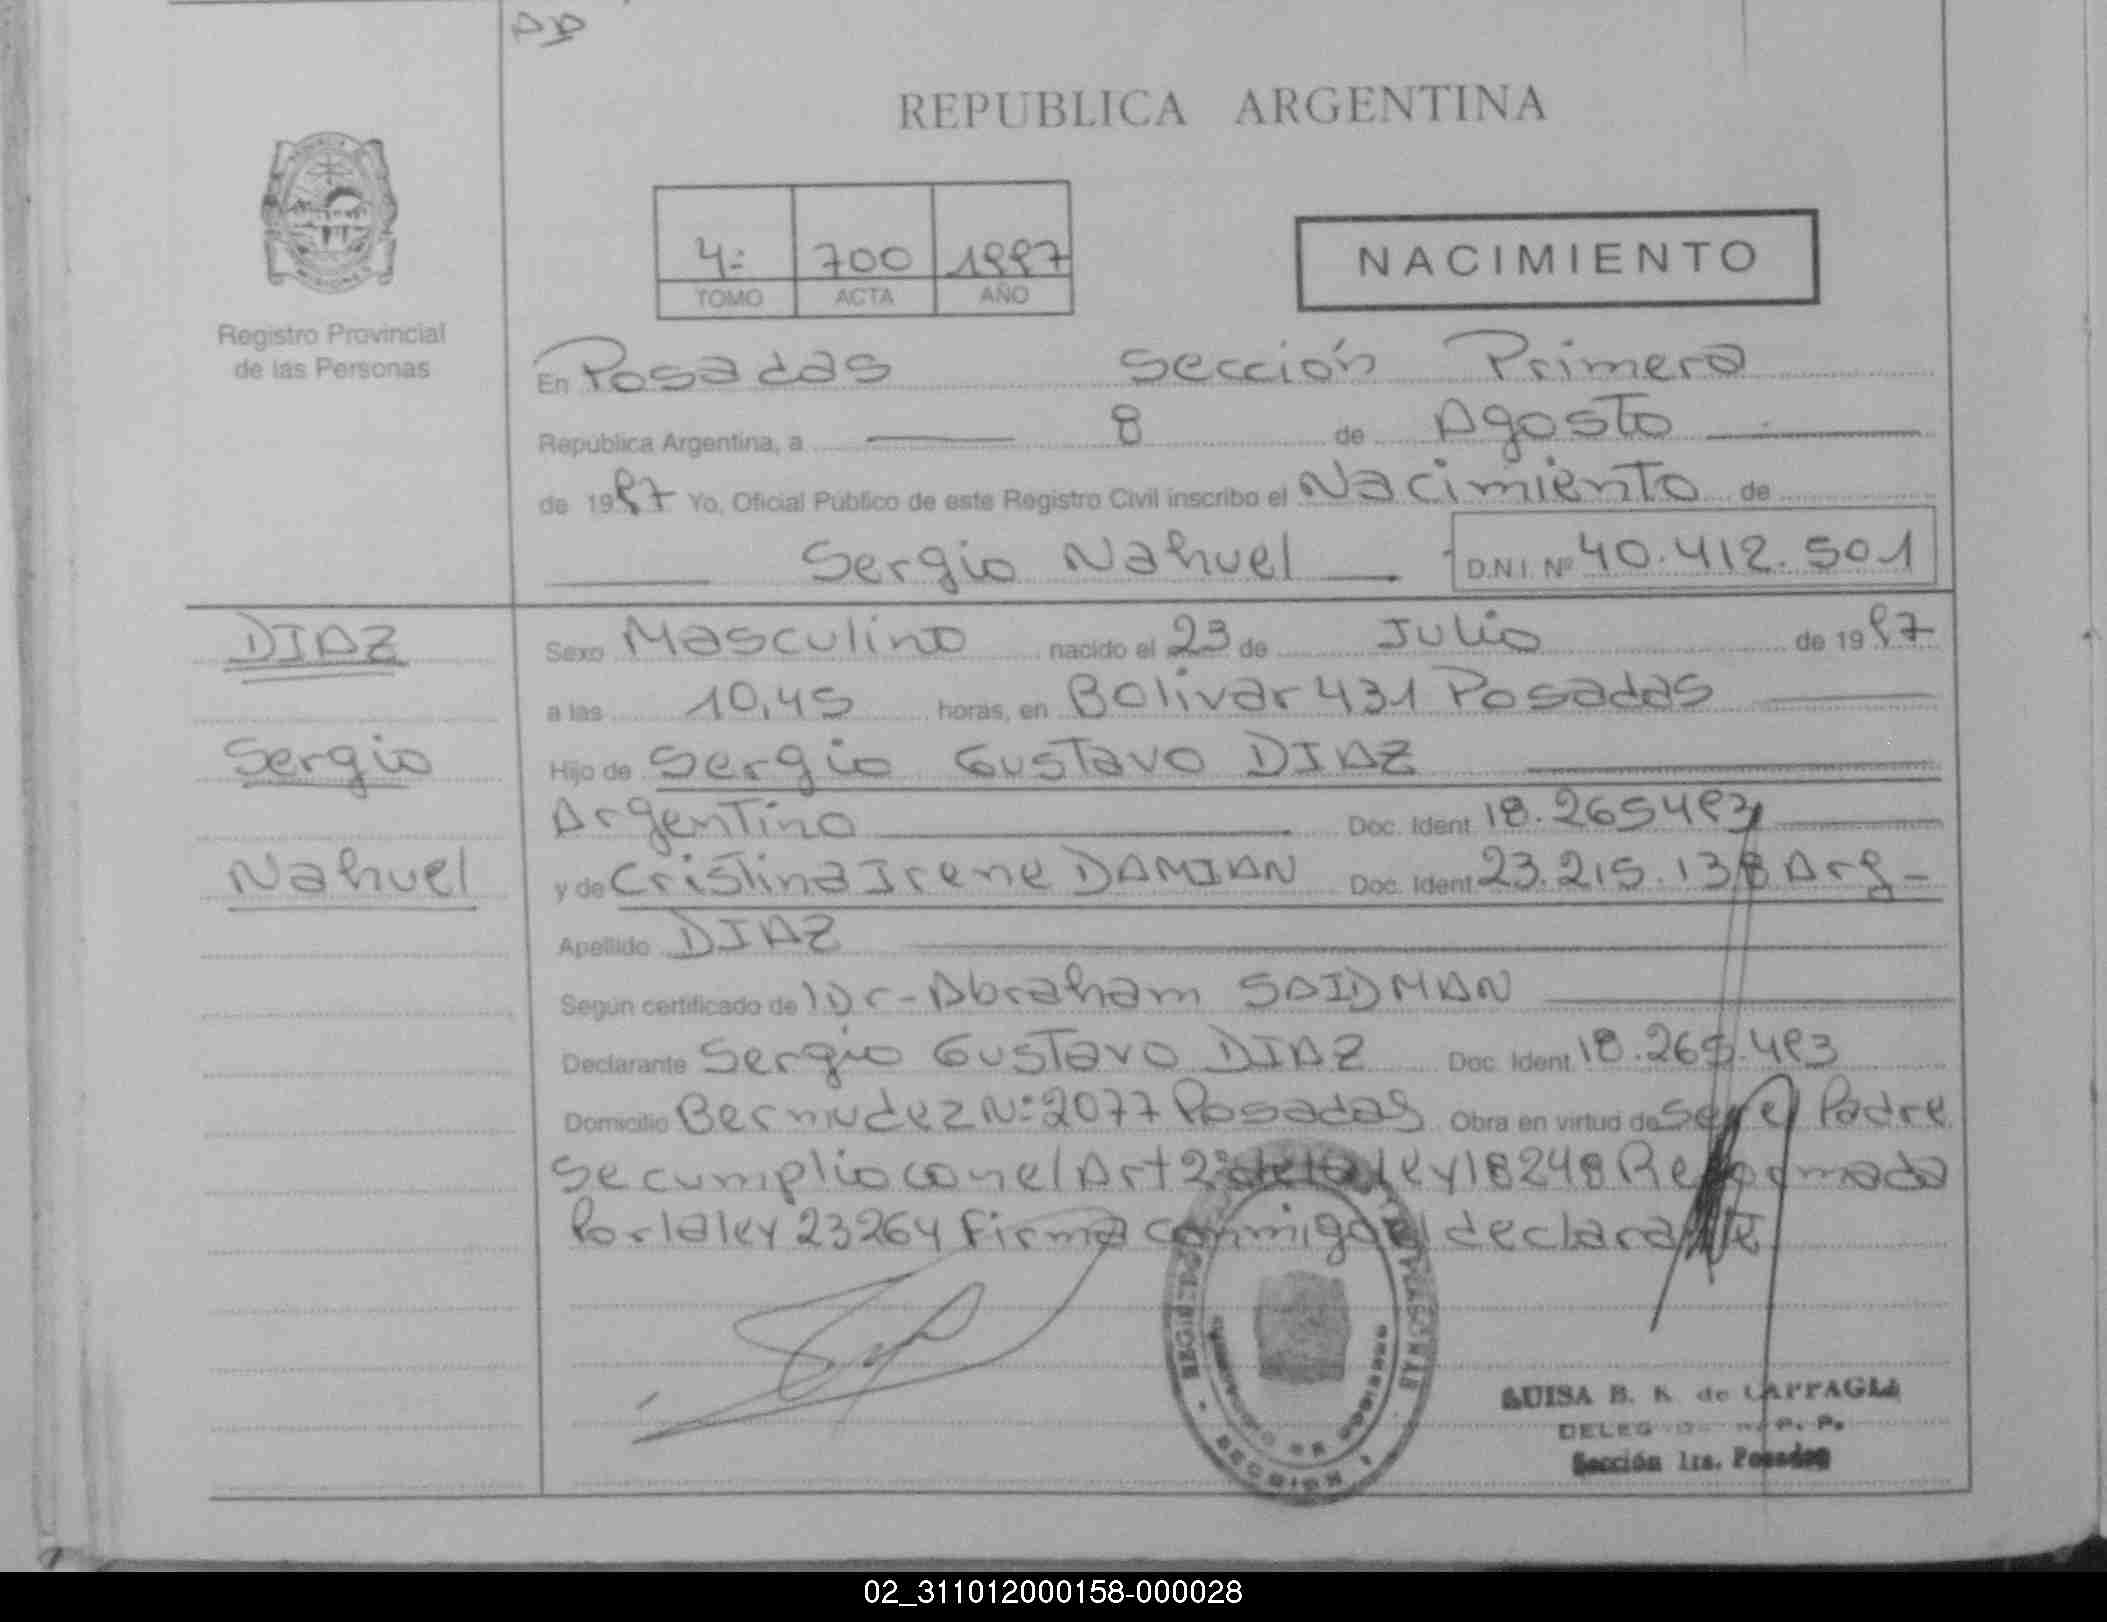 REPUBLICA ARGENTINA
4º 700 1997
TOMO ACTA AÑO
NACIMIENTO
Registro Provincial
de las Personas
En Posadas Sección Primera
República Argentina, a 8 de Agosto
de 1997 Yo, Oficial Público de este Registro Civil inscribo el Nacimiento de
Sergio Nahuel D.N.I. Nº 40.412.501
DIAZ
Sergio
Nahuel
Sexo Masculino nacido el 23 de Julio de 1997
a las 10,45 horas, en Bolivar 431 Posadas
Hijo de Sergio Gustavo DIAZ
Argentino Doc. Ident. 18.265493
y de Cristina Irene DAMIAN Doc. Ident. 23.215.138 Arg-
Apellido DIAZ
Según certificado de Dr- Abraham SAIDMAN
Declarante Sergio Gustavo DIAZ Doc. Ident. 18.265.493
Domicilio Bermudez Nº 2077 Posadas Obra en virtud de ser el Padre
Se cumplio con el Art 2º de la ley 18248 Reformada
Por la ley 23264 Firma conmigo el declarante
LUISA B. K. de CAPPAGLI
SECCION 1
Sección 1ra. Posadas
02_311012000158-000028